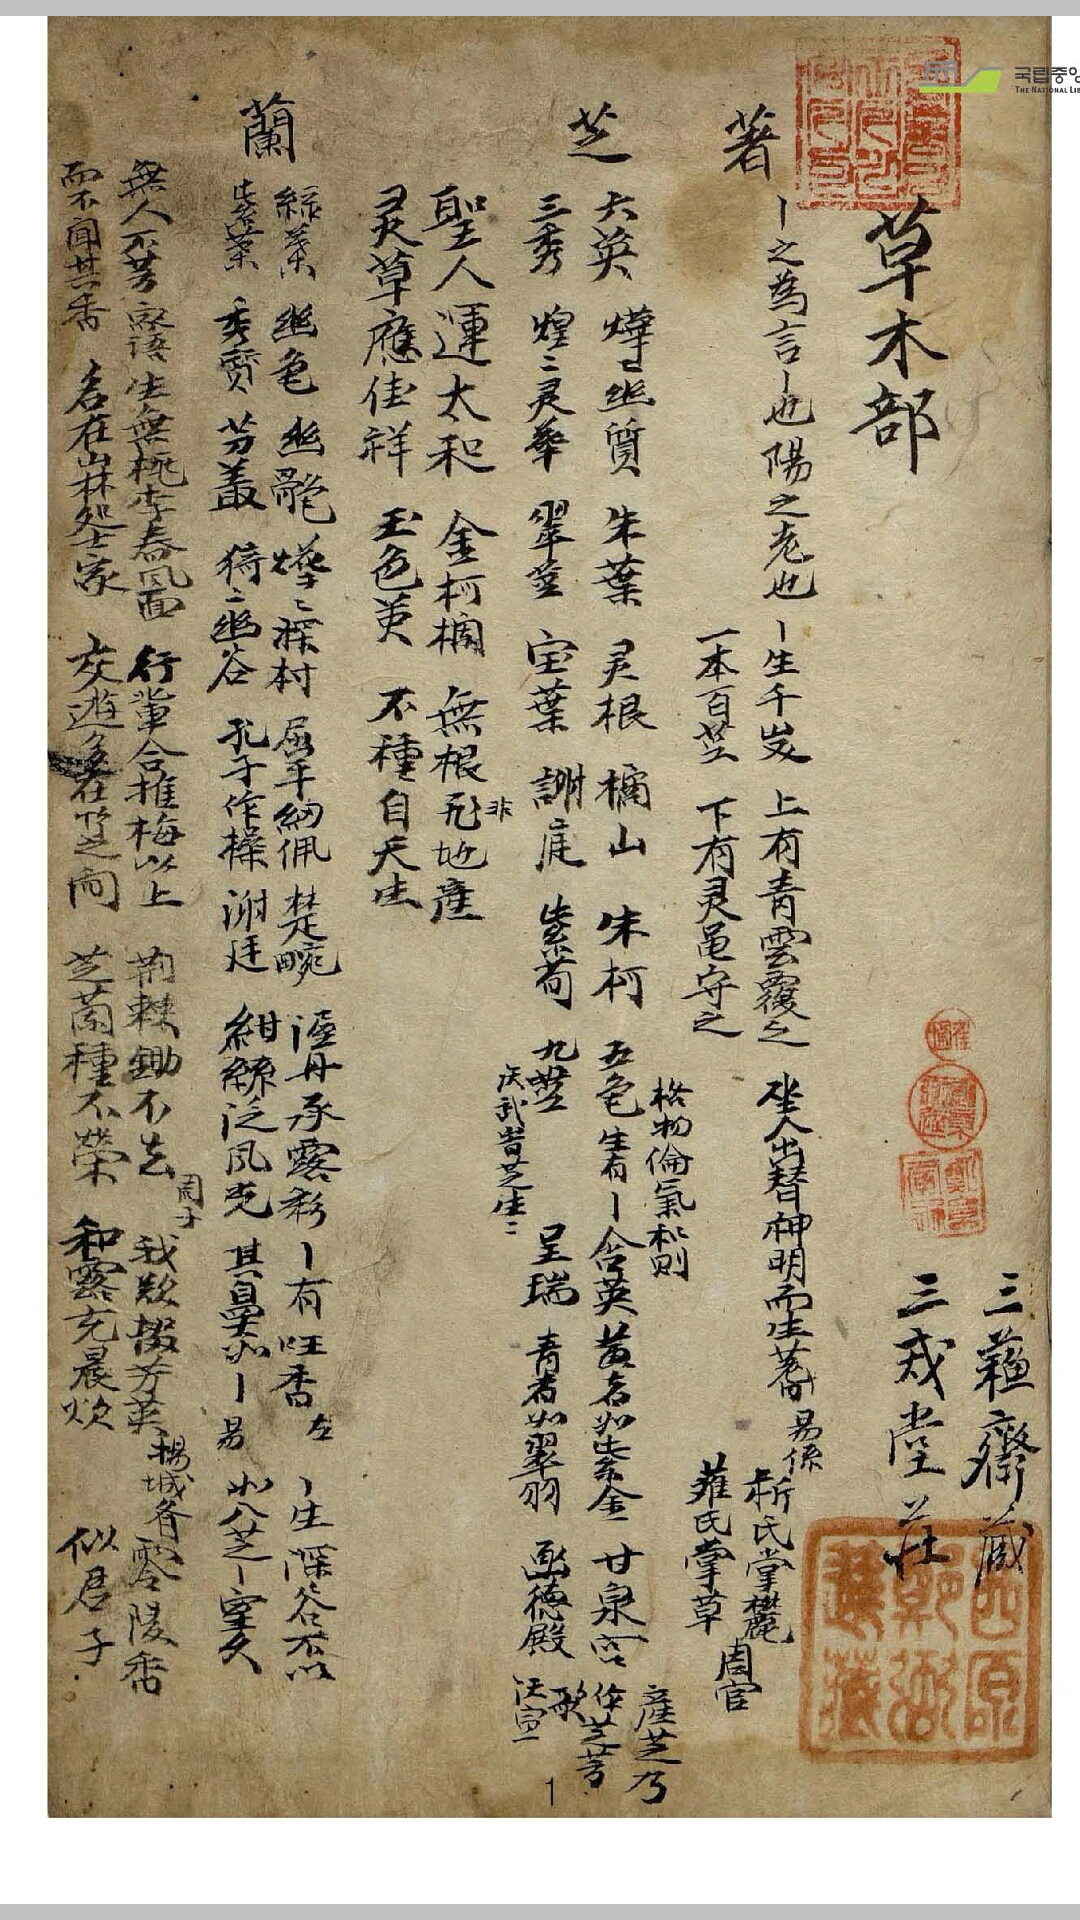 국립중앙
THE NATIONAL LIB
三蘓齋藏
三戒堂莊
草木部
蓍
丨之為言丨也陽之老也 丨生千歲 上有青雲覆之 聖人出贊神明而生蓍 易係 析氏掌欎
一本百莖 下有灵龜守之 蓷氏掌草 周官
芝
六英 燁〻幽質 朱葉 灵根 橘山 朱柯 五色 生有丨 含英 黃者如紫金 甘泉宮 產芝乃作芝芳歌
格物倫氣和則
三秀 煌〻灵華 翠莖 宝葉 謝庭 紫菊 九莖 呈瑞 青者如翠羽 函德殿 汉宣
汉武皆芝生〻
聖人運太和 金柯摘 無根非地產
灵草應佳祥 玉色英 不種自天生
蘭
綠葉 幽色 幽艶 燁〻深村 屈平紉佩 楚畹 浥丹承露彩 丨有旺香 左 丨生深谷不以
紫葉 秀質 芳叢 猗〻幽谷 孔子作操 謝廷 紺緣泛風光 其臭如丨 易 如入芝丨室久
無人不芳 家語 生無桃李春風面 行輩合推梅以上 荊棘鋤不去 我欲掇芳英 零陵香
周子
楊城斉
而不聞其香 名在山林処士家 交遊多在芝之間 芝蘭種不榮 和露充晨炊 似君子
1